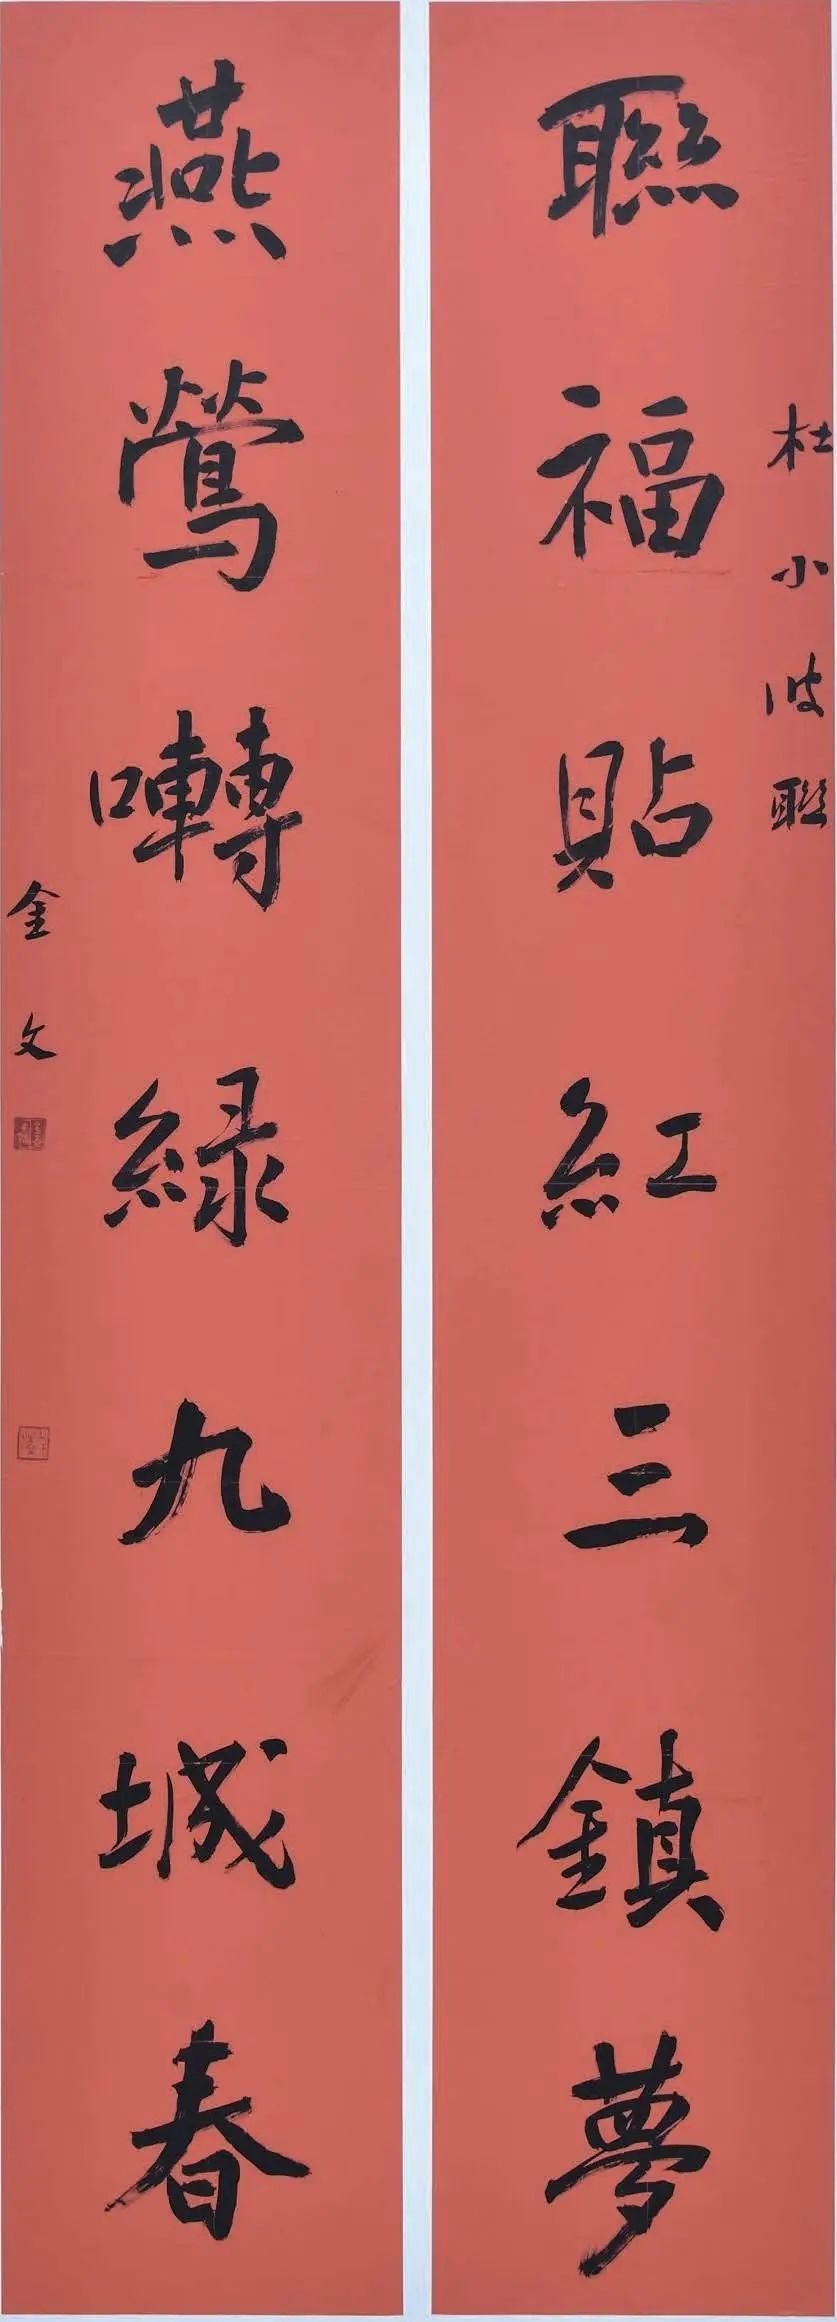 聯福貼紅三鎮夢
杜小波聯
燕鶯囀緑九城春
金文